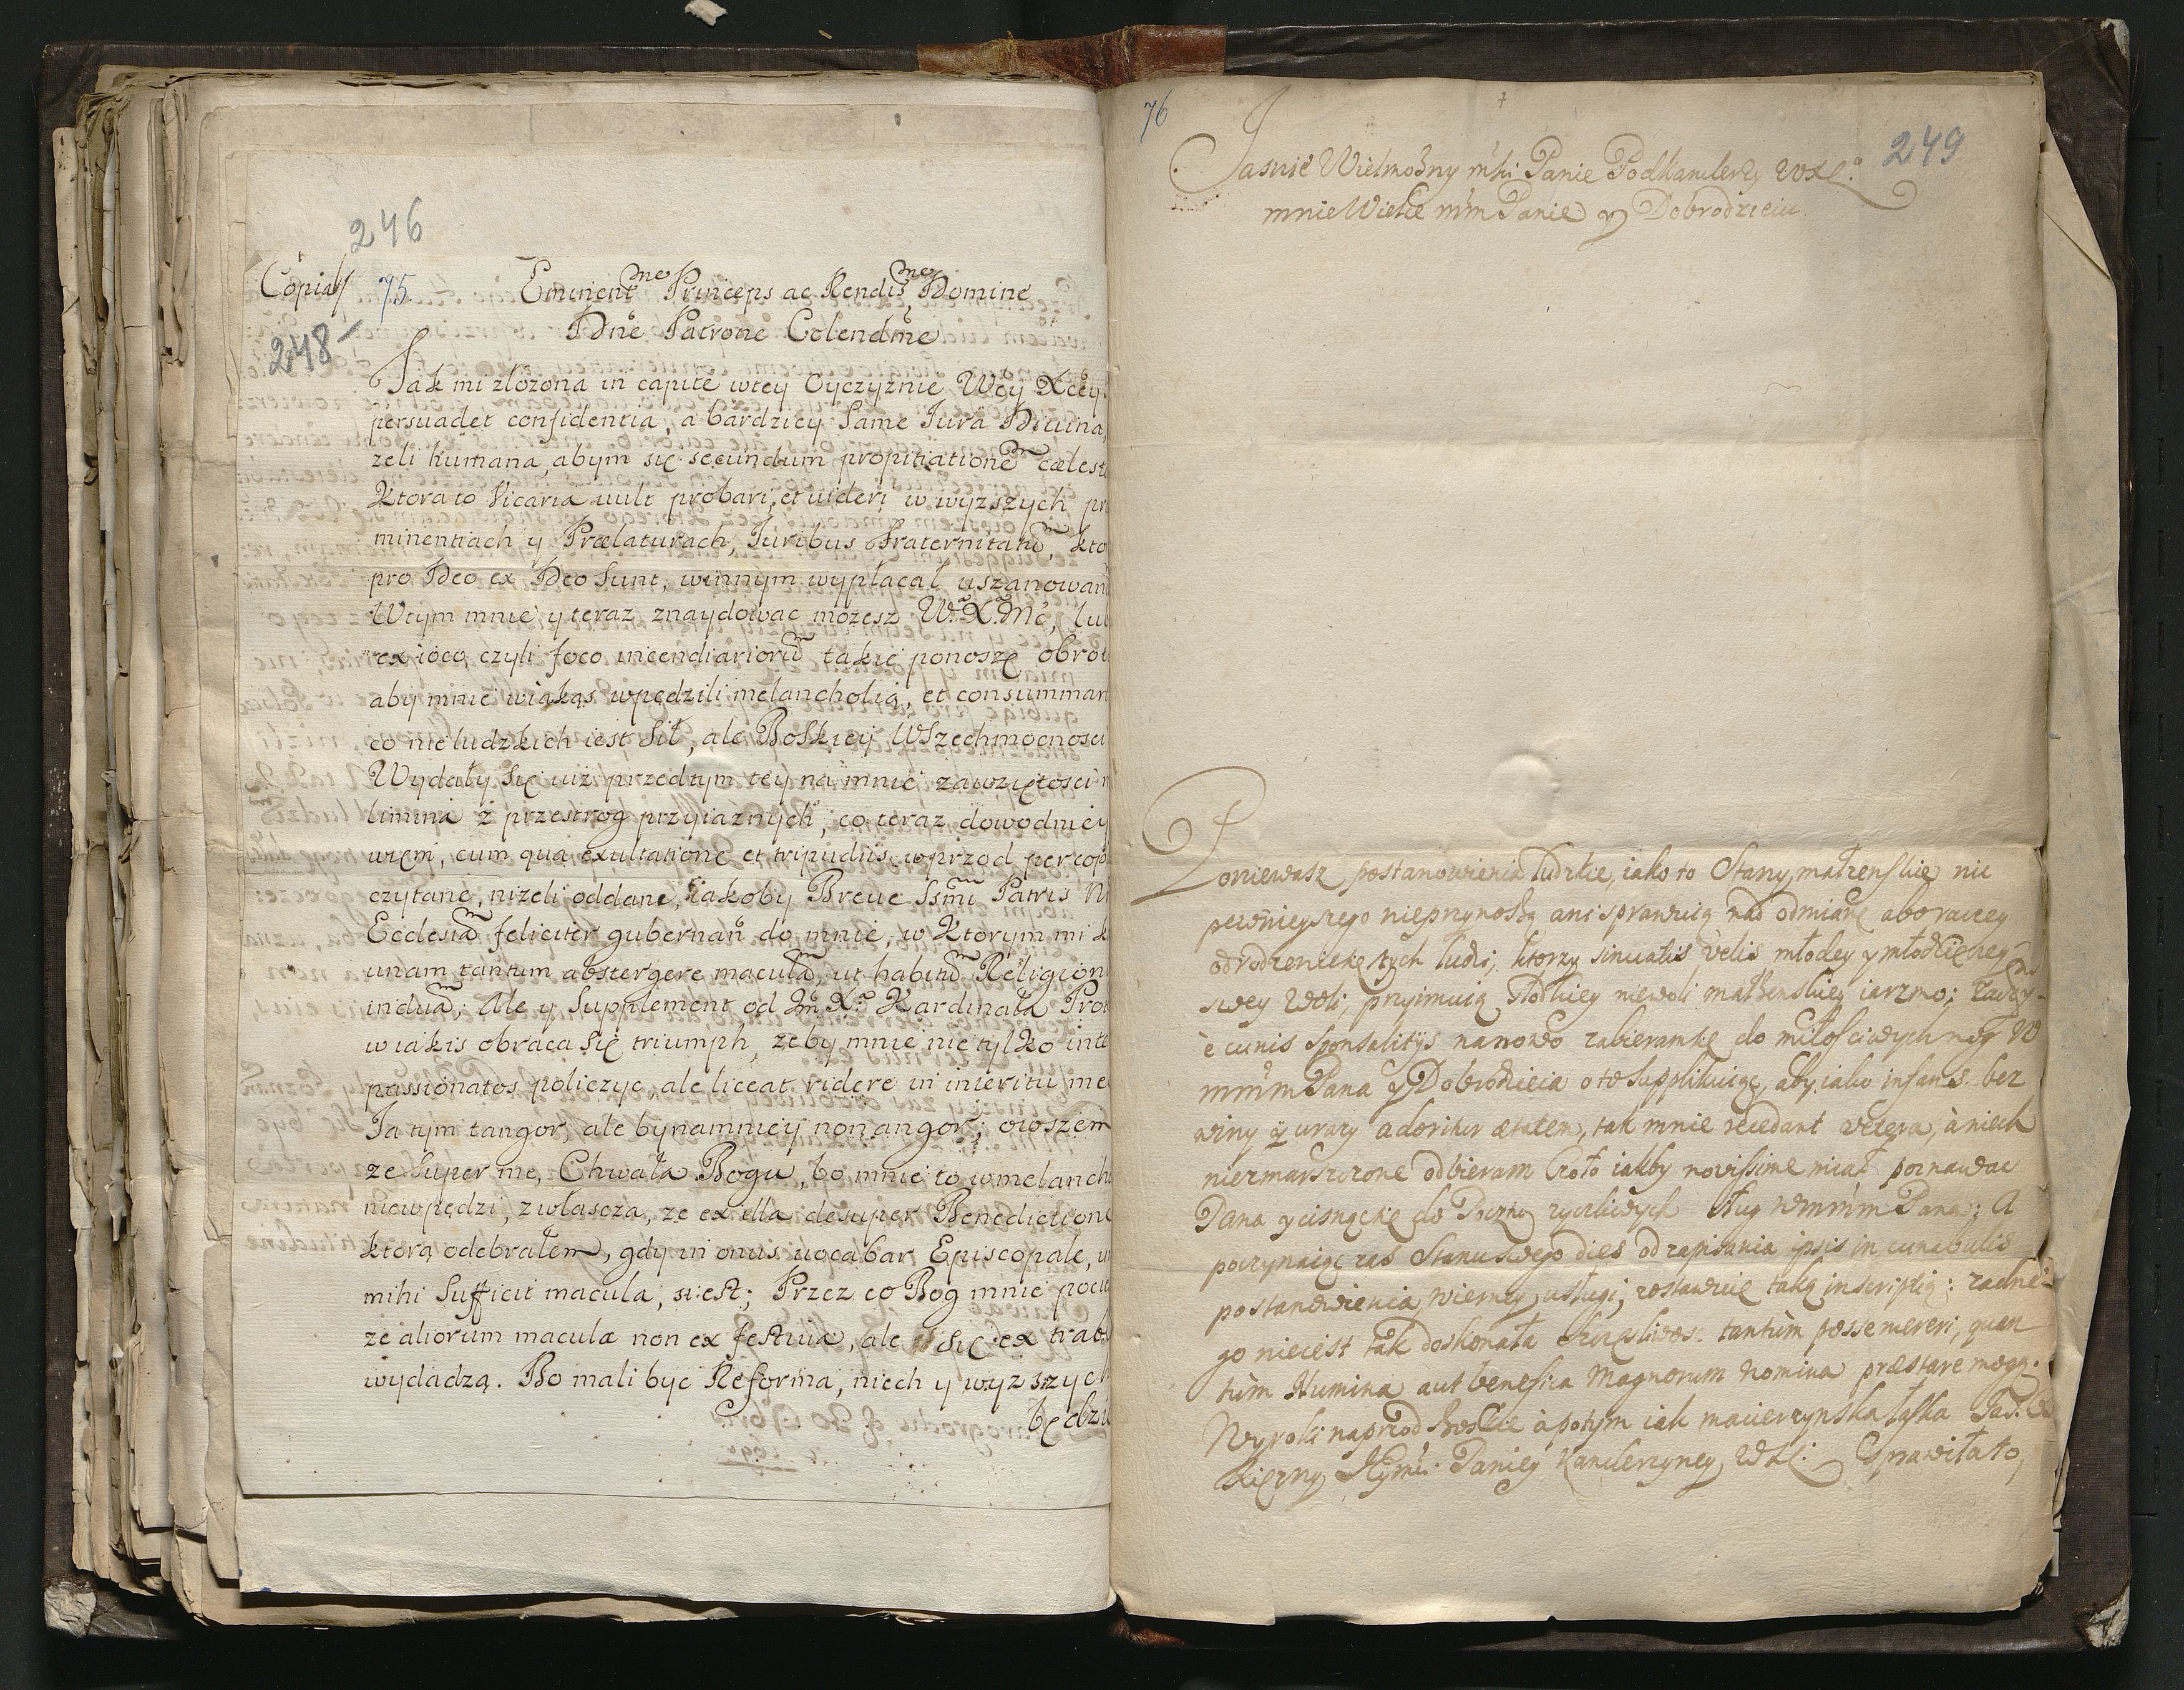 246
Copia 75. Eminent^me Princeps ac Rendis^me Domine
248 Dne Patrone Colendme
Jak mi złozona in capite wtey Oyczyznie Wcy Xcey
persuadet confidentia, a bardziey Same Jura Diuina,
zeli humana, abym się secundum propitiatione cœlest
Ktora to Vicaria uult probari, et uideri w wyzszych pr
minentiach y Prælaturach, Juribus Fraternitatu, kto
pro Deo ex Deo Sunt, winnym wypłacał uszanowan
Wtym mnie y teraz znaydowac mozesz W. X. Mc, lub
ex ioco, czyli foco incendiarioru takie ponoszę obro
aby mnie wiakąs wpędzili melancholią, et consummar
co nie ludzkich iest Sił, ale Boskiey Wszechmocnosci
Wydały Się iuz przedtym tey na mnie zawziętosci
limina z przestrog przyiaznych, co teraz dowodniey
wiem, cum qua exultatione et tripudiis wprzod per cop
czytane, nizeli oddane, iakoby Breue Ssmi Patris N
Ecclesia feliciter gubernan do mnie, w Ktorym mi k
unam tantum abstergere macula, ut habitu Religion
indua, Ale y Supplement od Jm X. Kardinała Prot
w iakis obraca Się triumph, zeby mnie nie tylko inte
passionatos policzyc, ale liceat ridere in interitu me
Ja tym tangor, ale bynamniey non angor; owszem
ze Super me, Chwała Bogu, bo mnie to wmelanch
niewpędzi, zwłascza, ze ex illa desuper Benediction
ktorą odebrałem, gdy in onus uocabar Episcopale, u
mihi Sufficit macula, si est; Przez co Bog mnie poci
ze aliorum maculæ non ex festuia, ale Się ex trab
wydadzą. Bo mali byc Reforma, niech y wyzszych
będzi
76
249
Jasnie Wielmozny mhi Panie Podkanclerzy WXL.
mnie Wielce mm Panie y Dobrodzieiu
Poniewasz postanowienia ludzkie, iako to Stany małzenskie nic
pewnieyszego nieprzynoszą ani sprawuią nad odmianę aboraczey
odrodzenie tych ludzi, ktorzy sinuatis velis młodey y młodzieney
swey woli, przyimuią słodkiey niewoli małzenskiey iarzmo;
è cunis Sponsalitys nanowo zabieram do miłosciwych nog W
mm Pana y Dobrodzieia o to Supplikuiąc, aby iako infans bez
winy y urazy adoritur ætatem, tak mnie recedant vetera, à niech
niezmarszczone odbieram czoło iakby novissime miał poznawac
Pana y cisnącę do Pocztu zyczliwych sług wmm Pana; A
poczynaiąc zas Stanu swego dies od zapisania ipsis in cunabulis
postanowienia, wierney usługi, zostawuię taką inscriptią: zadne-
go nieiest tak doskonała tantum posse mereri, quan
tum Numina aut benefica Magnorum nomina præstare mogą.
Wyroki naprzod Boskie à potym iak macierzynska łaska Jas.
Xięzny Jeymci Paniey Kanclerzyney WXL. Sprawiła to,